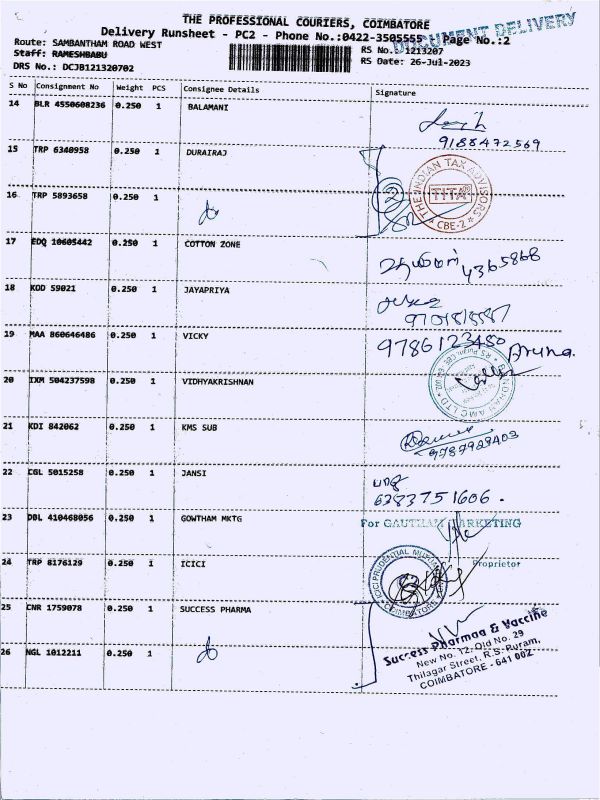 THE PROFESSIONAL COURIERS, COIMBATORE
DOCUMENT DELIVERY
Delivery Runsheet - PC2 - Phone No.:0422-3505555 Page No.:2
Route: SAMBANTHAM ROAD WEST RS No.: 1213207
Staff: RAMESHBABU RS Date: 26-Jul-2023
DRS No.: DCJB121320702
S No Consignment No Weight PCS Consignee Details Signature
14 BLR 4550608236 0.250 1 BALAMANI
9188472569
15 TRP 6340958 0.250 1 DURAIRAJ
THE INDIAN TAX ADVISORS
TITA
CBE-2
16 TRP 5893658 0.250 1
17 EDQ 10605442 0.250 1 COTTON ZONE
4365868
18 KOD 59021 0.250 1 JAYAPRIYA
19 MAA 860646486 0.250 1 VICKY
9786123450 Aruna.
20 IXM 504237598 0.250 1 VIDHYAKRISHNAN
21 KDI 842062 0.250 1 KMS SUB
9787929403
22 CGL 5015258 0.250 1 JANSI
6383751606.
23 DBL 410468056 0.250 1 GOWTHAM MKTG
For GAUTHAM MARKETING
Proprietor
24 TRP 8176129 0.250 1 ICICI
ICICI PRUDENTIAL MUTUAL
COIMBATORE
25 CNR 1759078 0.250 1 SUCCESS PHARMA
Success Pharmaa & Vaccine
New No. 12, Old No. 29
Thilagar Street, R.S. Puram,
COIMBATORE - 641 002
26 NGL 1012211 0.250 1